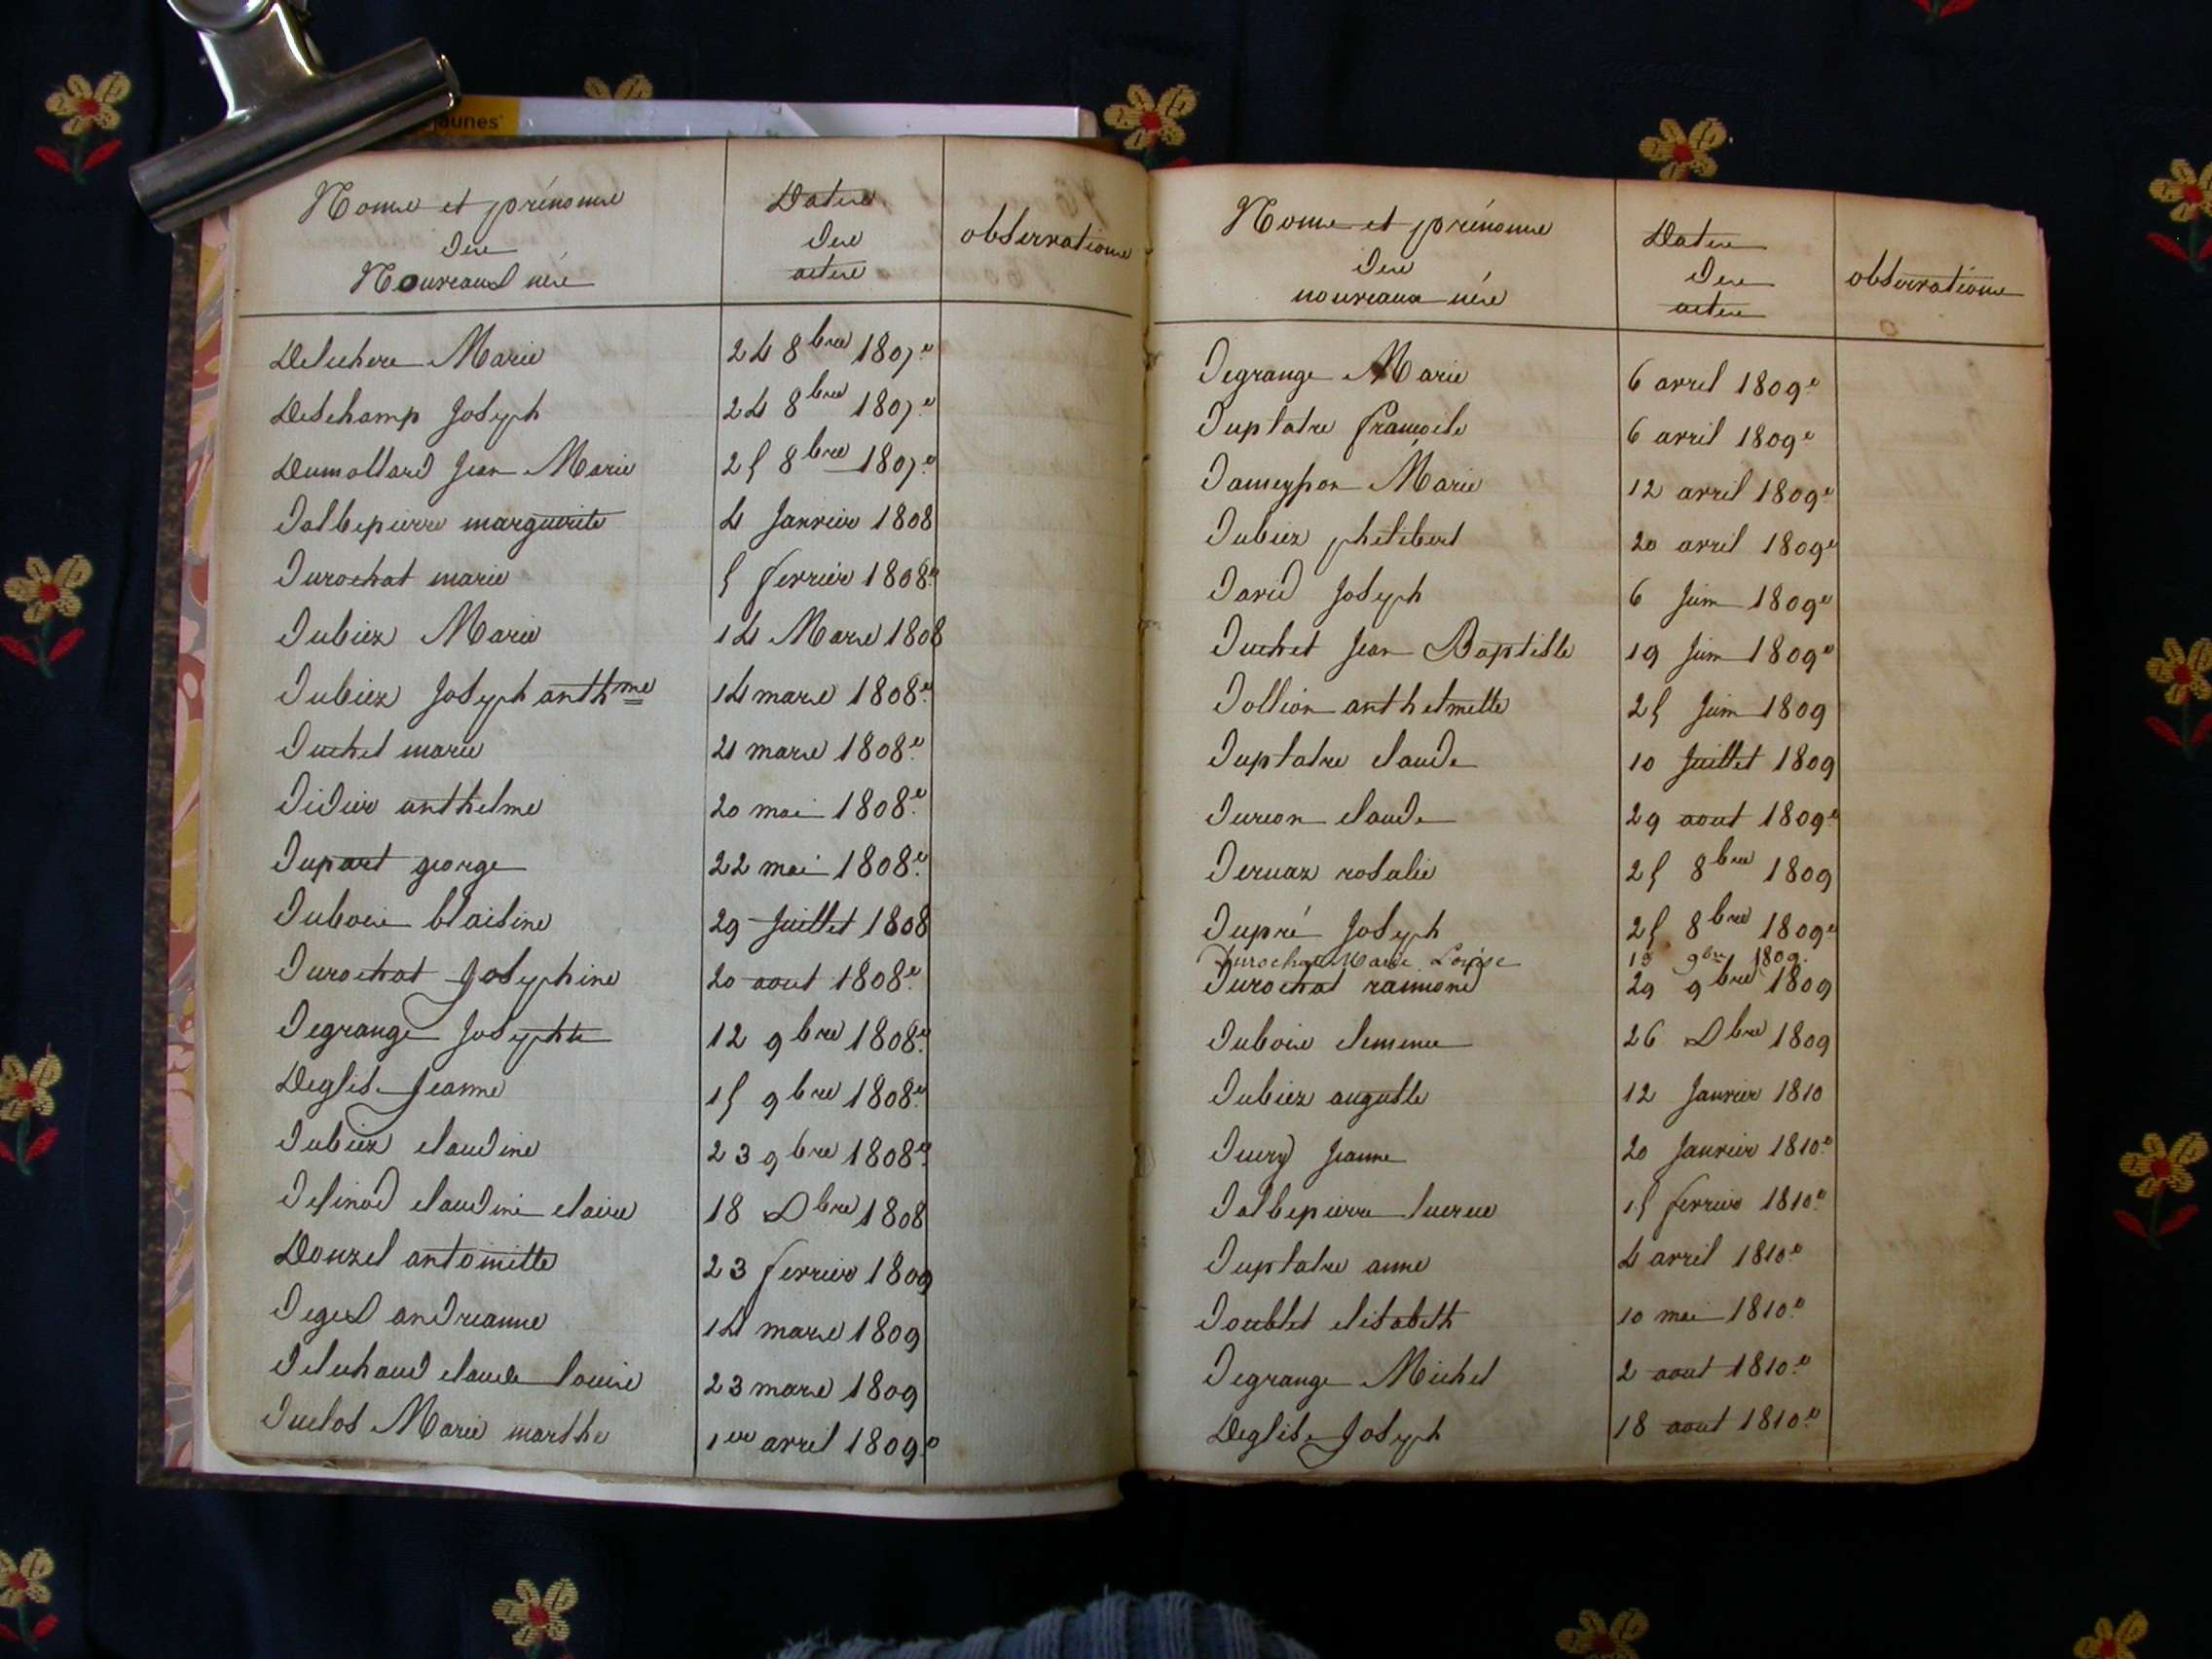 jaunes
Noms et prénoms
Des
Nouveaux nés
Dates
Des
actes
observations
Deluchere Marie 24 8bre 1807.
Deschamp Joseph 24 8bre 1807.
Dumollard Jean Marie 25 8bre 1807.
Dalbepierre marguerite 4 Janvier 1808
Durochat marie 5 fevrier 1808.
Dubiez Marie 14 Mars 1808
Dubiez Joseph anthme 14 mars 1808.
Duchet marie 21 mars 1808.
Didier anthelme 20 mai 1808.
Dupart george 22 mai 1808.
Dubois blaisine 29 Juillet 1808
Durochat Josephine 20 aout 1808.
Degrange Josephte 12 9bre 1808.
Deglise Jeanne 15 9bre 1808.
Dubiez claudine 23 9bre 1808.
claudine claire 18 Dbre 1808
Donzel antoinette 23 fevrier 1809
andreanne 14 mars 1809
Deluchaud claude louise 23 mars 1809
Duclos Marie marthe 1er avril 1809.
Noms et prénoms
Des
nouveaux nés
Dates
Des
actes
observations
Degrange Marie 6 avril 1809.
Duplatre francoise 6 avril 1809
Dameypon Marie 12 avril 1809
Dubiez philibert 20 avril 1809
David Joseph 6 Juin 1809
Duchet Jean Baptiste 19 Juin 1809
Dollion anthelmette 25 Juin 1809
Duplatre claude 10 Juillet 1809
Durion claude 29 aout 1809
Dervaz rosalie 25 8bre 1809
Dupré Joseph 25 8bre 1809
Durochat Marie Loïse 15 9bre 1809.
Durochat raimond 29 9bre 1809
Dubois clemence 26 Dbre 1809
Dubiez auguste 12 Janvier 1810
Ducry Jeanne 20 Janvier 1810.
Dalbepierre lucrece 15 fevrier 1810.
Duplatre anne 4 avril 1810.
Doublet elisabeth 10 mai 1810.
Degrange Michel 2 aout 1810.
Deglise Joseph 18 aout 1810.